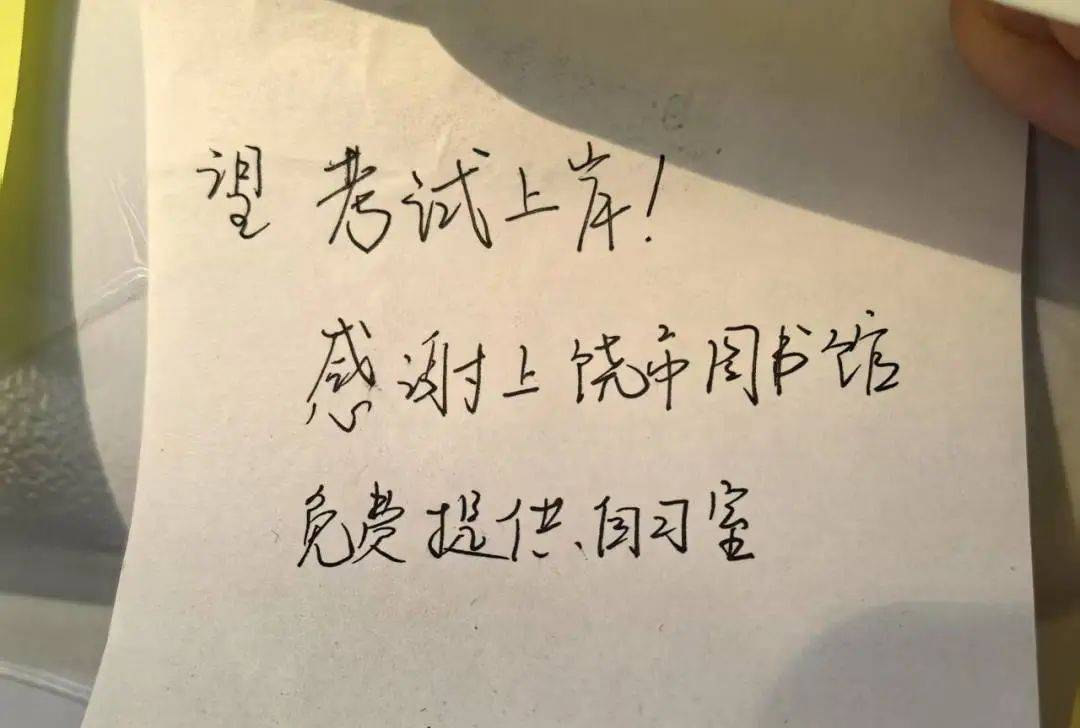 望 考试上岸!
感谢上饶市图书馆
免费提供自习室